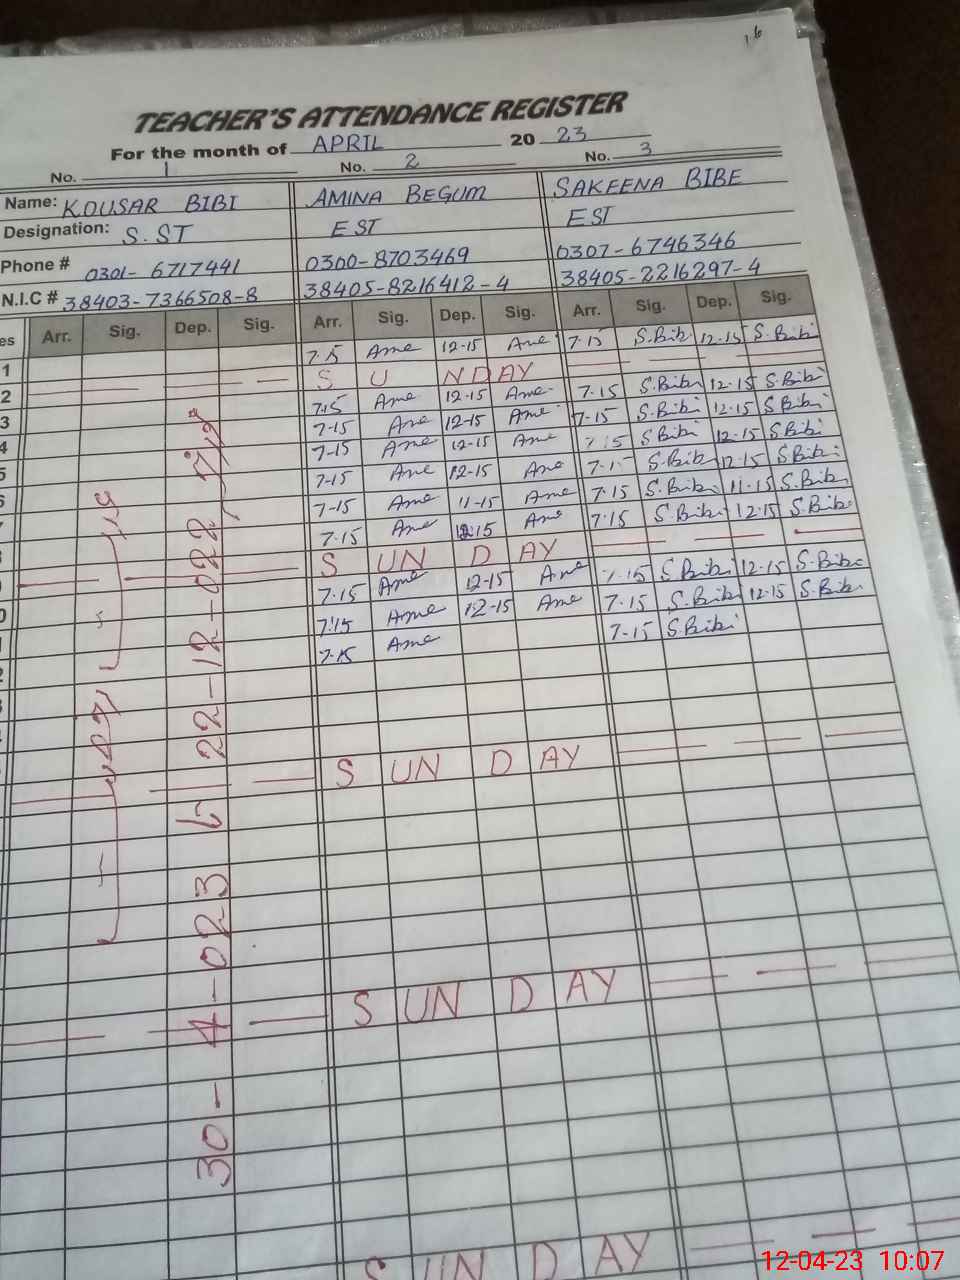 TEACHER'S ATTENDANCE REGISTER
For the month of APRIL 20 23
No. 1 No. 2 No. 3
Name: KOUSAR BIBI AMINA BEGUM SAKEENA BIBE
Designation: S.ST EST EST
Phone # 0301-6717441 0300-8703469 0307-6746346
N.I.C # 38403-7366508-8 38405-8216412-4 38405-2216297-4
es Arr. Sig. Dep. Sig. Arr. Sig. Dep. Sig. Arr. Sig. Dep. Sig.
1 7.15 Ame 12-15 Ame 7-15 S.Bibi 12-15 S.Bibi
2 S U N D AY
3 7.15 Ame 12-15 Ame 7-15 S.Bibi 12-15 S.Bibi
4 7-15 Ame 12-15 Ame 7-15 S.Bibi 12-15 S.Bibi
5 7-15 Ame 12-15 Ame 7-15 S.Bibi 12-15 S.Bibi
6 7-15 Ame 12-15 Ame 7-15 S.Bibi 12-15 S.Bibi
7-15 Ame 11-15 Ame 7-15 S.Bibi 11-15 S.Bibi
7.15 Ame 12.15 Ame 7-15 S.Bibi 12-15 S.Bibi
S UN D AY
7.15 Ame 12-15 Ame 7-15 S.Bibi 12-15 S.Bibi
7.15 Ame 12-15 Ame 7-15 S.Bibi 12-15 S.Bibi
7.15 Ame 7-15 S.Bibi
S UN D AY
S UN D AY
S UN D AY
30-4-023 22-12-022
12-04-23 10:07